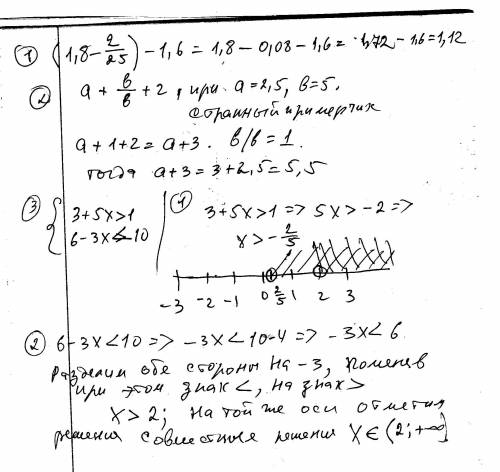 ① (1,8 - 2/25) - 1,6 = 1,8 - 0,08 - 1,6 = 1,72 - 1,6 = 1,12
② a + в/в + 2, при a = 2,5, в = 5.
странный примерчик
a + 1 + 2 = a + 3. в/в = 1.
тогда a + 3 = 3 + 2,5 = 5,5
③ { 3 + 5x > 1
6 - 3x < 10
① 3 + 5x > 1 => 5x > -2 =>
x > -2/5
-3 -2 -1 0 2/5 1 2 3
② 6 - 3x < 10 => -3x < 10-4 => -3x < 6.
Разделим обе стороны на -3, поменяв
при этом знак <, на знак >
x > 2; на той же оси отметил
решения совместные решения x ∈ (2; +∞]